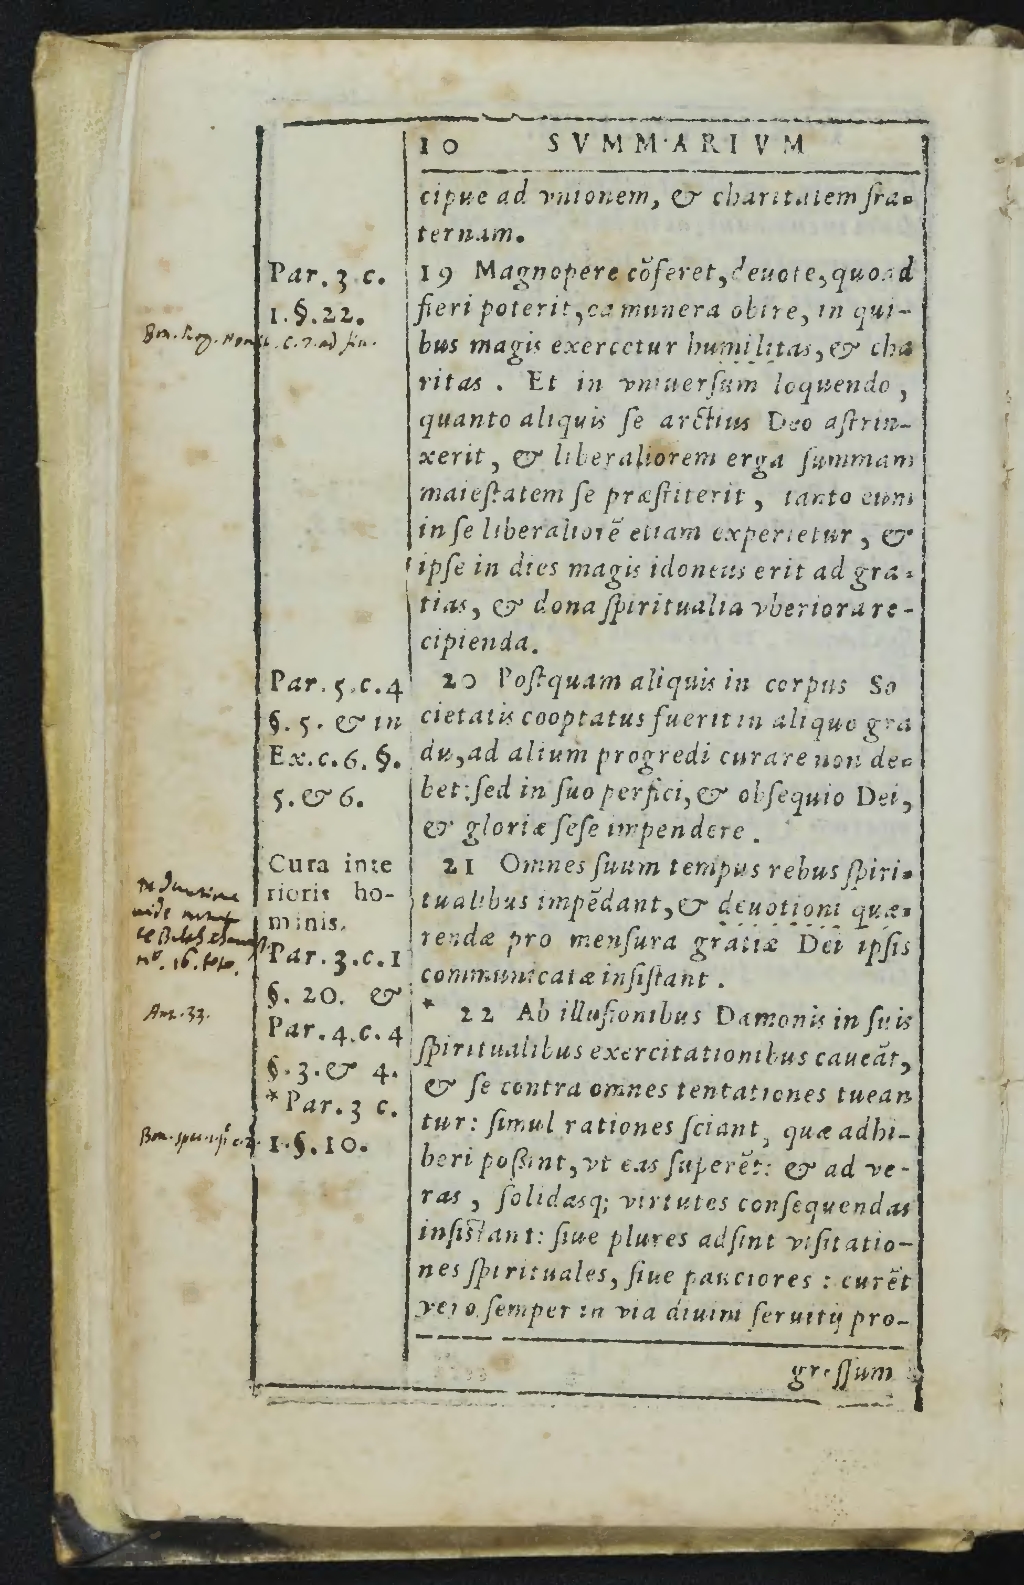 10 SVMMARIVM
cipue ad vnionem, & charitatem fra-
ternam.
Par. 3. c.
1. §. 22.
19 Magnopere cõferet, deuote, quoad
fieri poterit, ea munera obire, in qui-
bus magis exercetur humilitas, & cha
ritas. Et in vniuersum loquendo,
quanto aliquis se arctius Deo astrin-
xerit, & liberaliorem erga summam
maiestatem se præstiterit, tanto eum
in se liberaliorẽ etiam experietur, &
ipse in dies magis idoneus erit ad gra-
tias, & dona spiritualia vberiora re-
cipienda.
Par. 5. c. 4
§. 5. & in
Ex. c. 6. §.
5. & 6.
20 Postquam aliquis in corpus So
cietatis cooptatus fuerit in aliquo gra
du, ad alium progredi curare non de-
bet: sed in suo perfici, & obsequio Dei,
& gloriæ sese impendere.
Cura inte
rioris ho-
minis.
Par. 3. c. 1
§. 20. &
Par. 4. c. 4
§. 3. & 4.
*Par. 3 c.
1. §. 10.
21 Omnes suum tempus rebus spiri-
tualibus impẽdant, & deuotioni quæ-
rendæ pro mensura gratiæ Dei ipsis
communicatæ insistant.
* 22 Ab illusionibus Dæmonis in suis
spiritualibus exercitationibus caueãt,
& se contra omnes tentationes tuean
tur: simul rationes sciant, quæ adhi-
beri possint, vt eas superẽt: & ad ve-
ras, solidasq; virtutes consequendas
insistant: siue plures adsint visitatio-
nes spirituales, siue pauciores: curẽt
vero semper in via diuini seruitij pro-
gressum
Ant. 33.